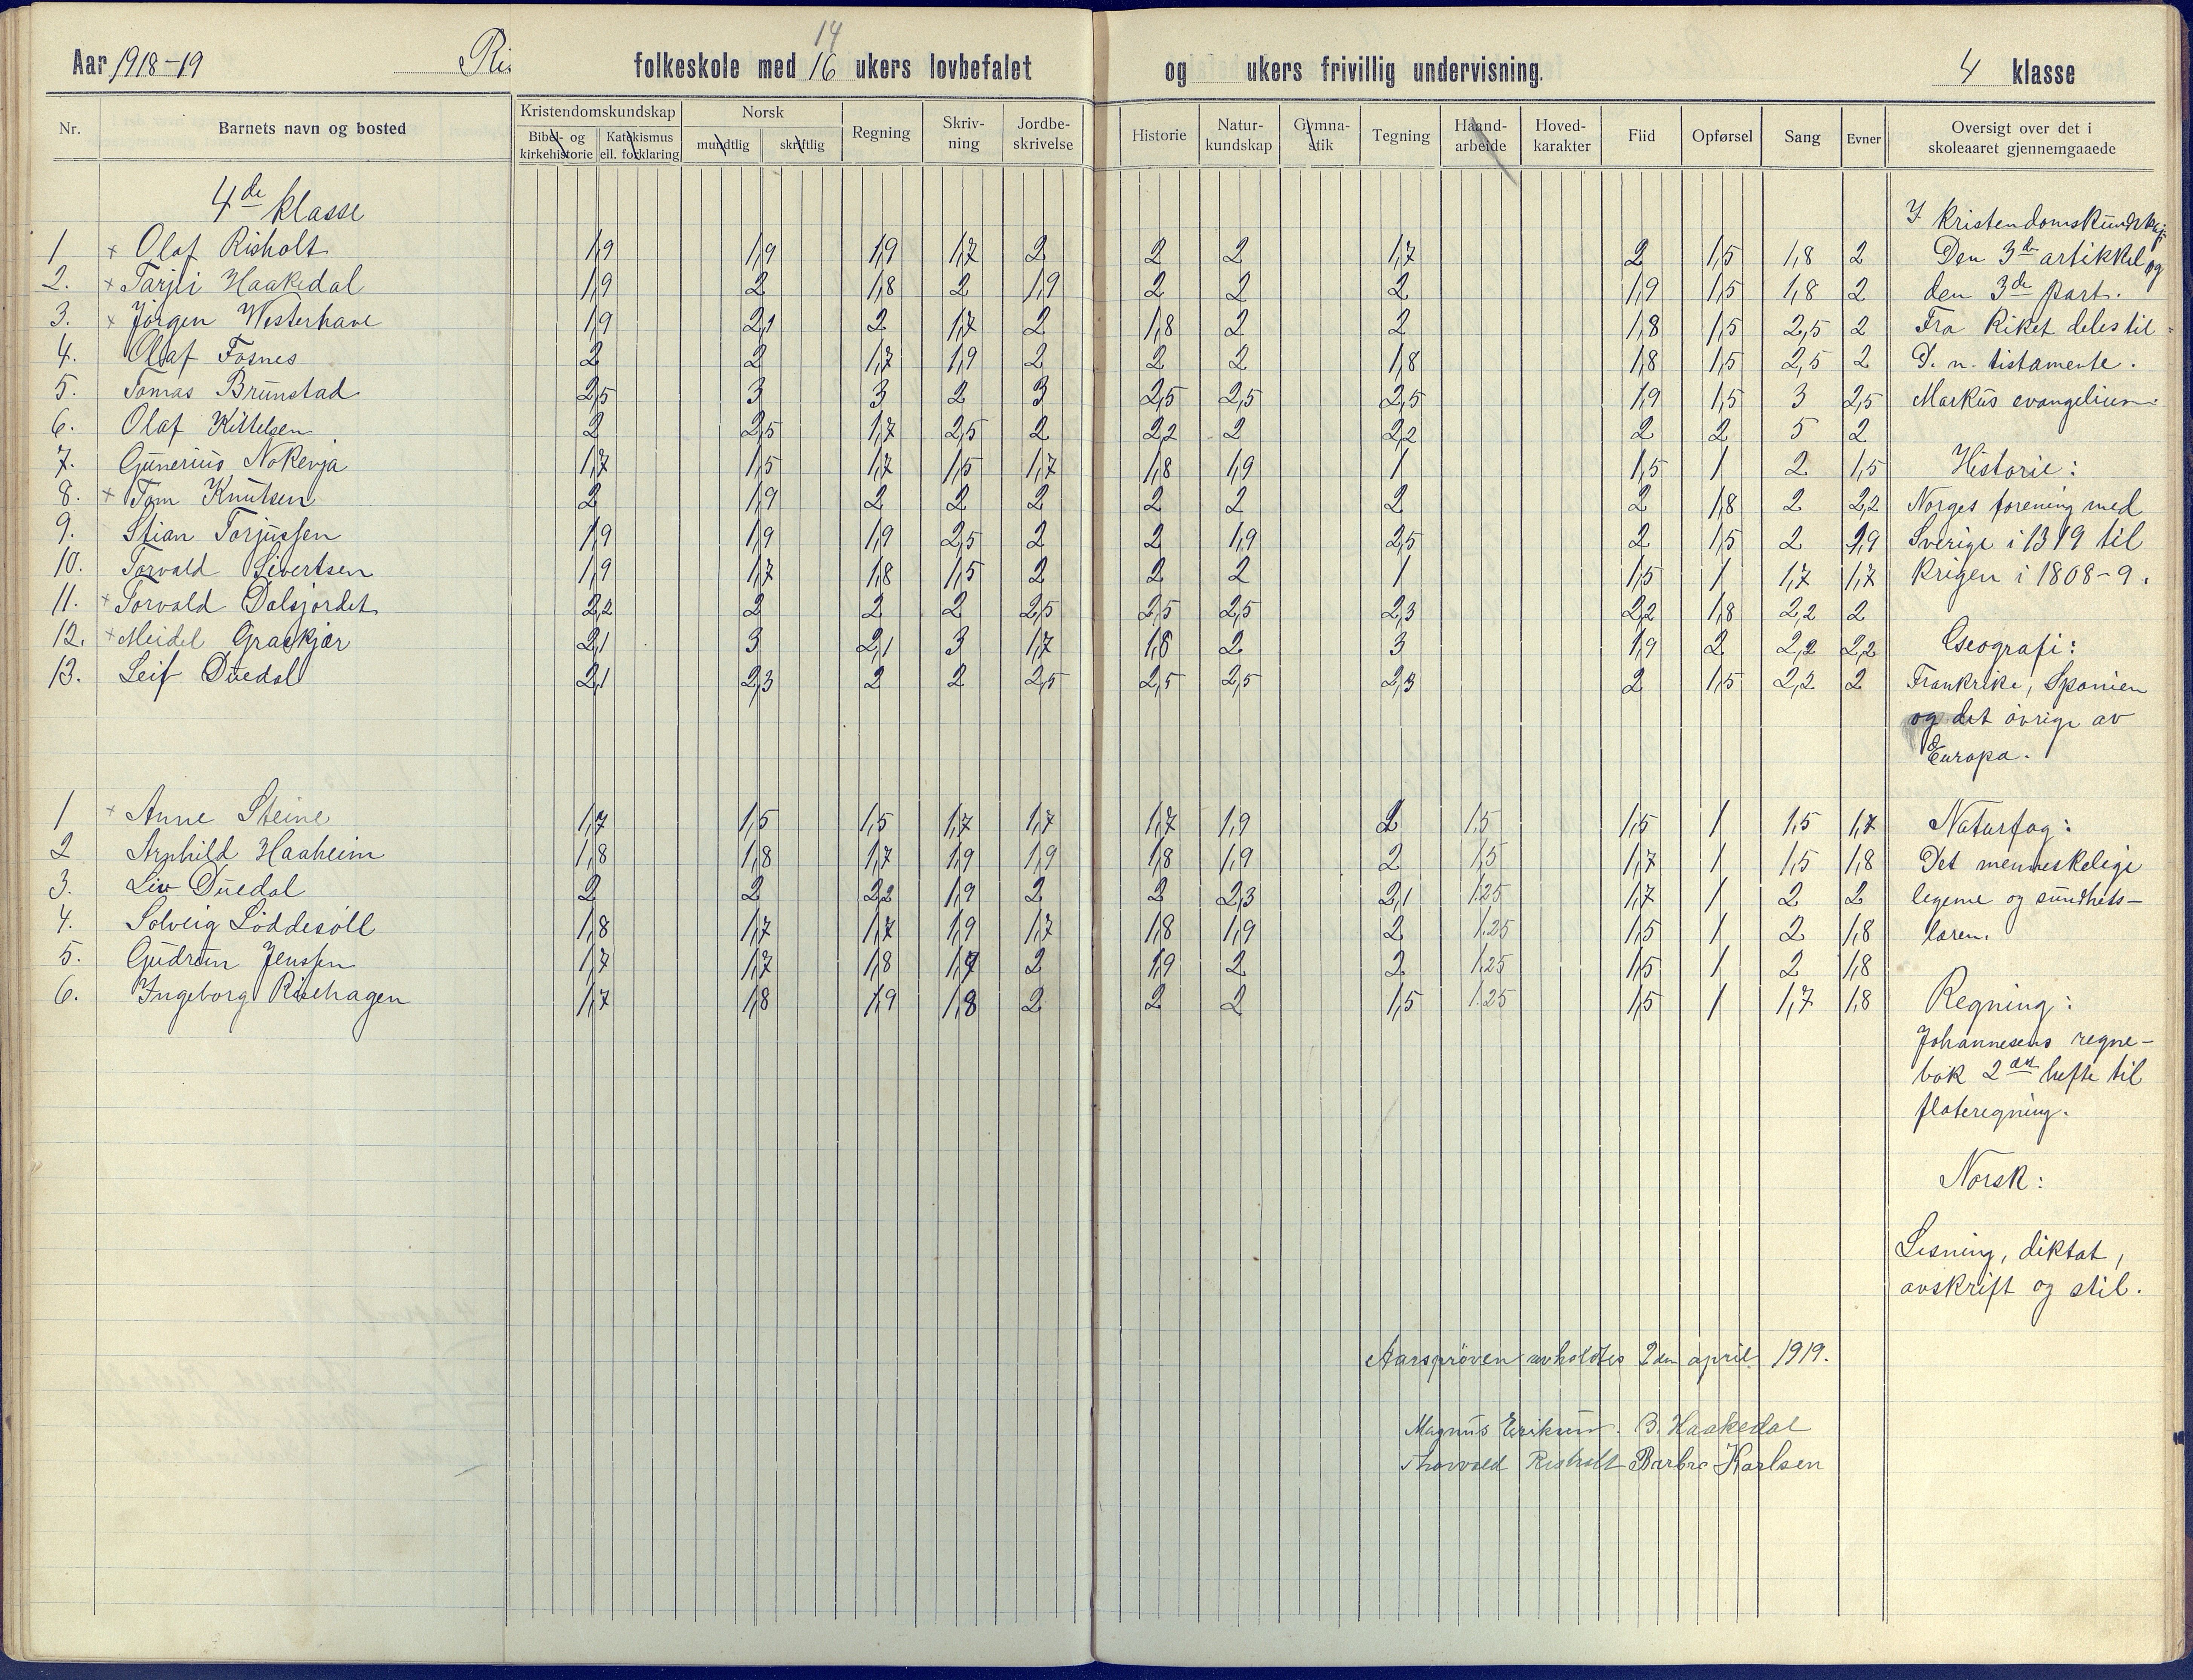 14
Aar 1918-19 Ris folkeskole med 16 ukers lovbefalet og ukers frivillig undervisning. 4 klasse
Nr. Barnets navn og bosted Kristendomskundskap Bibel- og kirkehistorie Katekismus ell. forklaring Norsk mundtlig skriftlig Regning Skriv-ning Jordbe-skrivelse Historie Natur-kundskap Gymna-stik Tegning Haand-arbeide Hoved-karakter Flid Opførsel Sang Evner Oversigt over det i skoleaaret gjennemgaaede
4de klasse
1 + Olaf Risholt 1,9 1,9 1,9 1,7 2 2 2 1,7 2 1,5 1,8 2
2. + Tarjei Haakedal 1,9 2 1,8 2 1,9 2 2 2 1,9 1,5 1,8 2
3. + Jörgen Westerhave 1,9 2,1 2 1,7 2 1,8 2 2 1,8 1,5 2,5 2
4. Olaf Fosnes 2 2 1,7 1,9 2 2 2 1,8 1,8 1,5 2,5 2
5. Tomas Brunstad 2,5 3 3 2 3 2,5 2,5 2,5 1,9 1,5 3 2,5
6. Olaf Kittelsen 2 2,5 1,7 2,5 2 2,2 2 2,2 2 2 5 2
7. Gunerius Nokenja 1,7 1,5 1,7 1,5 1,7 1,8 1,9 1 1,5 1 2 1,5
8. + Tom Knutsen 2 1,9 2 2 2 2 2 2 2 1,8 2 2,2
9. Stian Torjussen 1,9 1,9 1,9 2,5 2 2 1,9 2,5 2 1,5 2 1,9
10. Torvald Sivertsen 1,9 1,7 1,8 1,5 2 2 2 1 1,5 1 1,7 1,7
11. + Torvald Dalsjordet 2,2 2 2 2 2,5 2,5 2,5 2,3 2,2 1,8 2,2 2
12. + Meidel Graskjær 2,1 3 2,1 3 1,7 1,8 2 3 1,9 2 2,2 2,2
13. Leif Duedal 2,1 2,3 2 2 2,5 2,5 2,5 2,3 2 1,5 2,2 2
1 + Anne Steine 1,7 1,5 1,5 1,7 1,7 1,7 1,9 2 1,5 1,5 1 1,5 1,7
2 Arnhild Haaheim 1,8 1,8 1,7 1,9 1,9 1,8 1,9 2 1,5 1,7 1 1,5 1,8
3. Liv Duedal 2 2 2,2 1,9 2 2 2,3 2,1 1.25 1,7 1 2 2
4. Solveig Löddesöll 1,8 1,7 1,7 1,9 1,7 1,8 1,9 2 1.25 1,5 1 2 1,8
5. Gudrun Jenssen 1,7 1,7 1,8 1,7 2 1,9 2 2 1.25 1,5 1 2 1,8
6. Ingeborg Risehagen 1,7 1,8 1,9 1,8 2 2 2 1,5 1.25 1,5 1 1,7 1,8
I Kristendomskundskap:
Den 3de artikkel og
den 3de part.
Fra Riket deles til
D. n. testamente.
Markus evangelium.
Historie:
Norges forening med
Sverige i 1319 til
krigen i 1808-9.
Geografi:
Frankrike, Spanien
og det övrige av
Europa.
Naturfag:
Det menneskelige
legeme og sundhets-
læren.
Regning:
Johannesens regne-
bok 2det hefte til
flateregning.
Norsk:
Lesning, diktat,
avskrift og stil.
Aarspröven avholdtes 2den april 1919.
Magnus Eriksen. B. Haakedal
Thorvald Risholt Barbro Karlsen